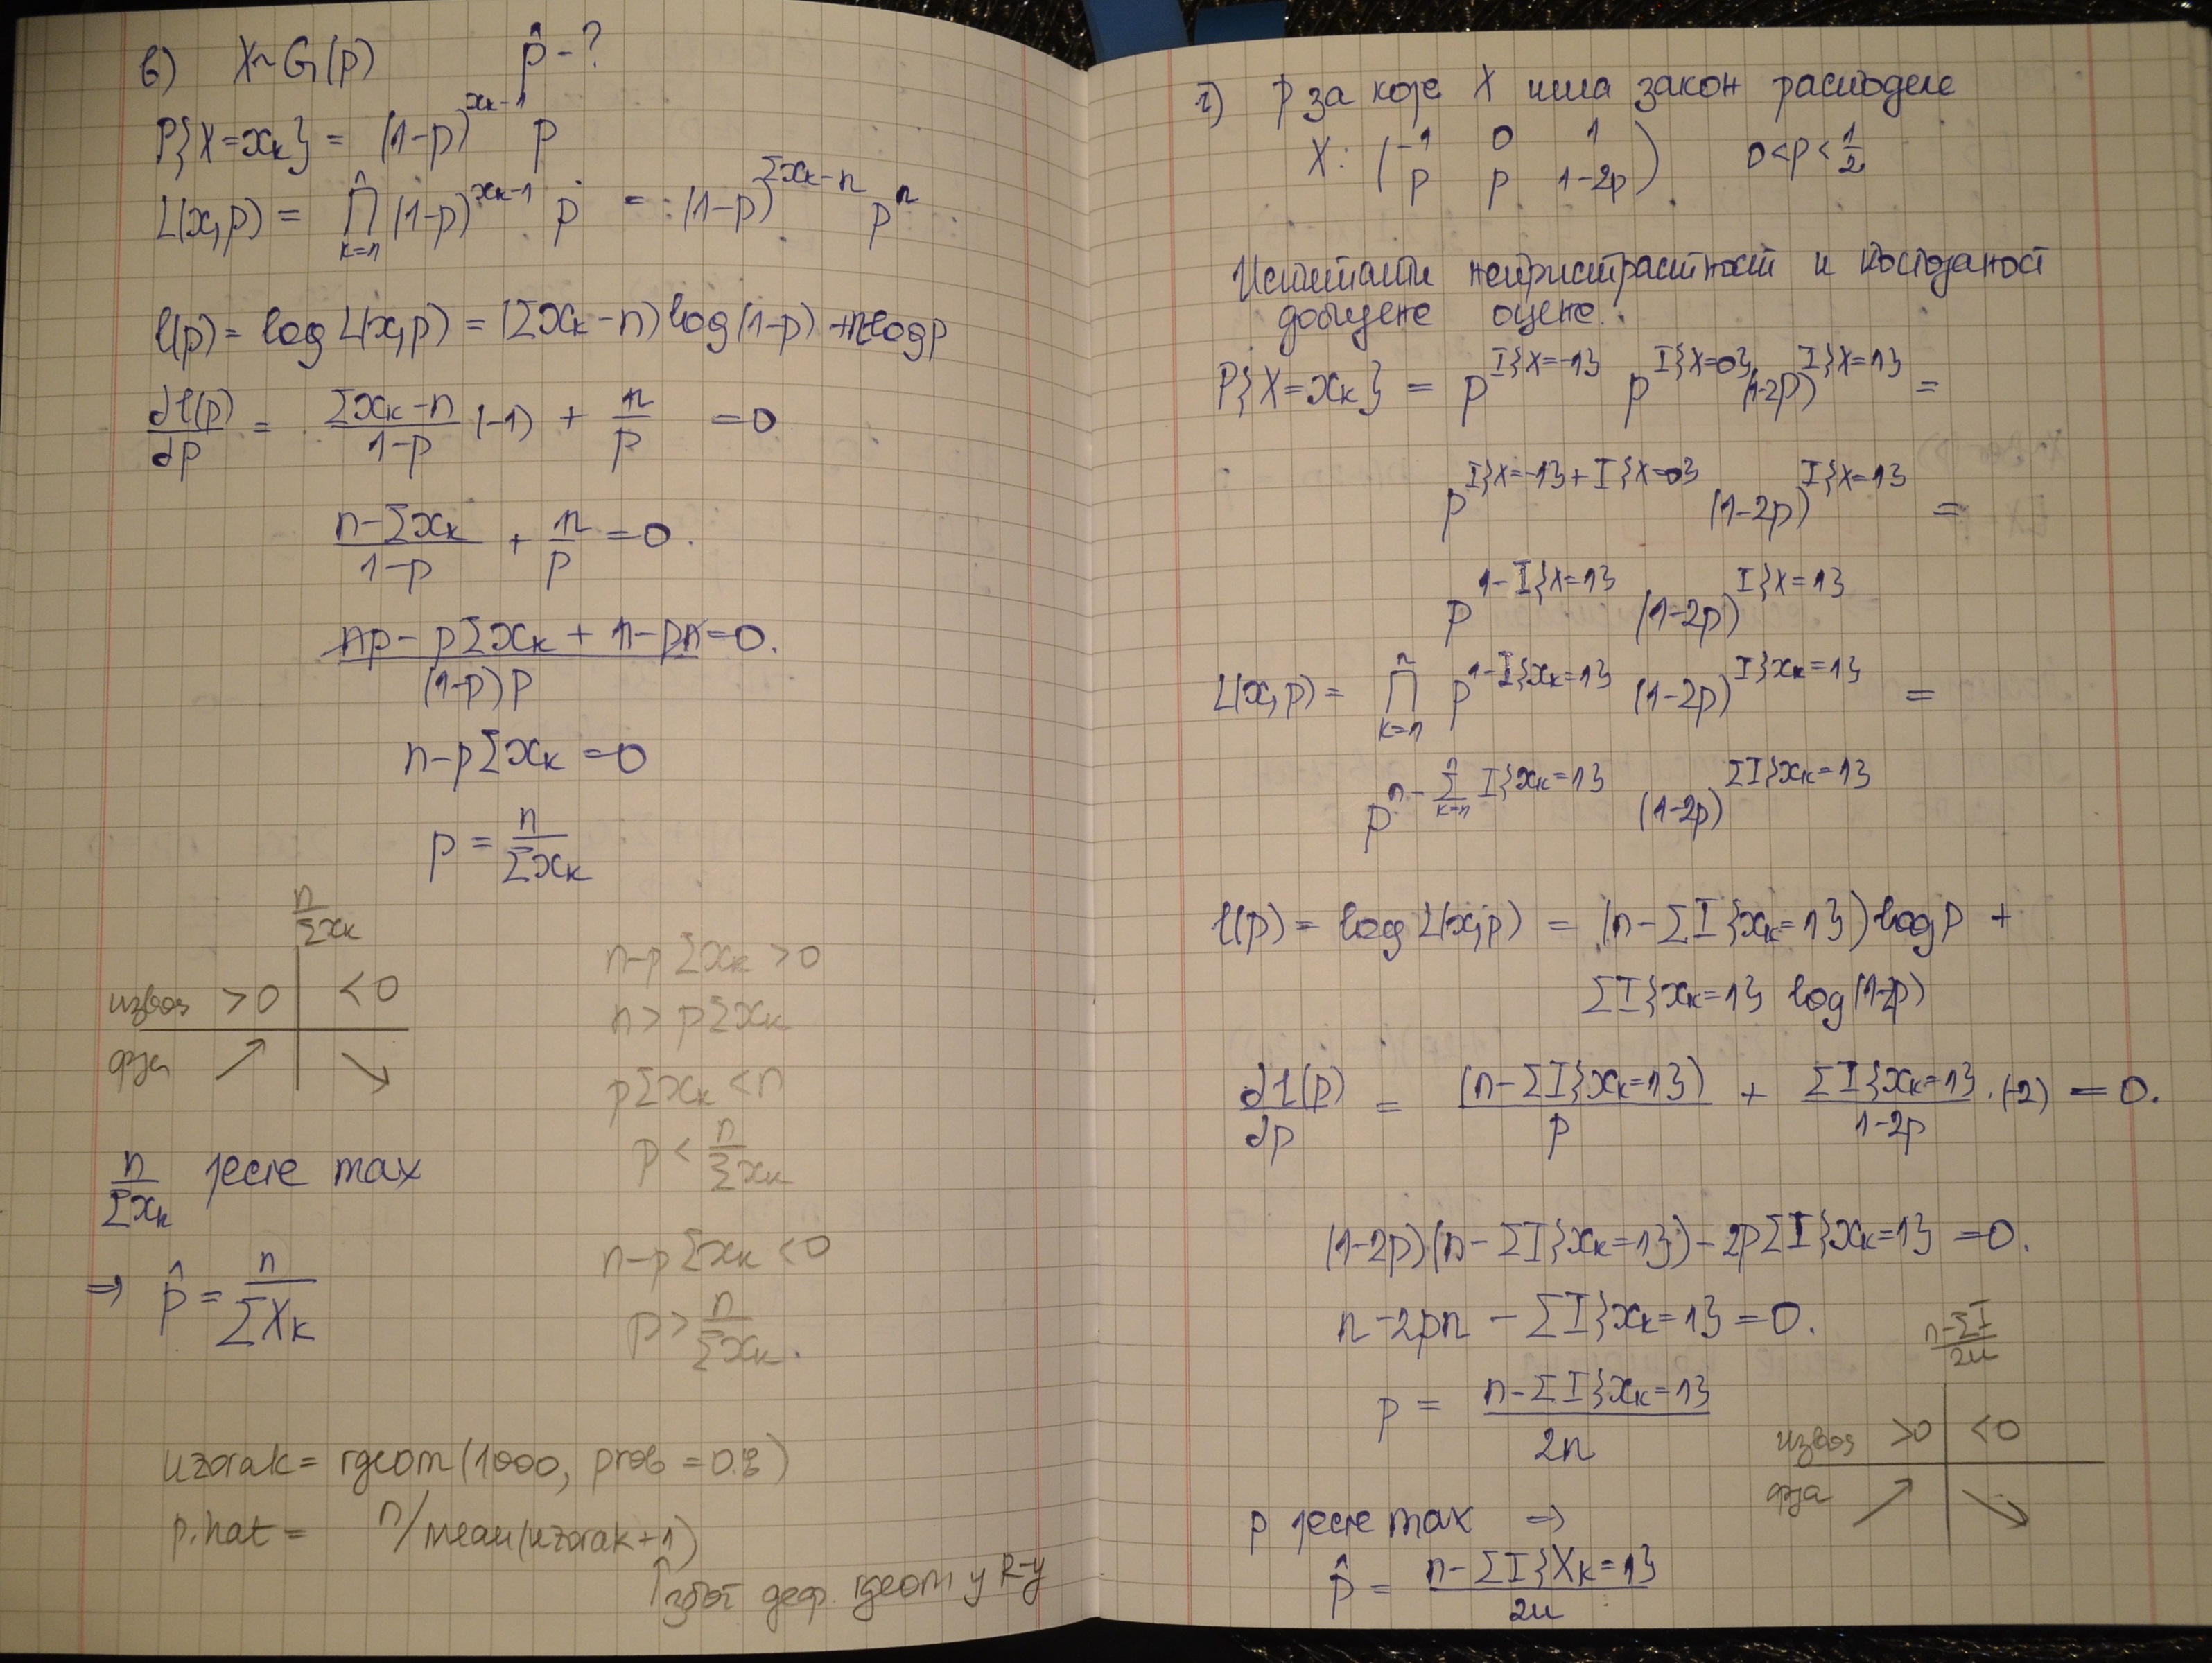 в) X~G(p) p̂-?
P{X=xₖ} = (1-p)^(xₖ-1) p
L(x,p) = ∏_(k=1)^n (1-p)^(xₖ-1) p = (1-p)^(Σxₖ-n) p^n
l(p) = log L(x,p) = (Σxₖ-n) log(1-p) + n log p
∂l(p)/∂p = (Σxₖ-n)/(1-p) (-1) + n/p = 0
(n-Σxₖ)/(1-p) + n/p = 0.
(np - pΣxₖ + n - pn)/((1-p)p) = 0.
n-pΣxₖ = 0
p = n/Σxₖ
n/Σxₖ
извод >0 <0
фја ↗ ↘
n-pΣxₖ >0
n > pΣxₖ
pΣxₖ < n
p < n/Σxₖ
n-pΣxₖ <0
p > n/Σxₖ.
n/Σxₖ јесте max
⇒ p̂ = n/ΣXₖ
uzorak = rgeom(1000, prob = 0.3)
p.hat = n/mean(uzorak+1)
↑ због деф. rgeom у R-у
г) p за које X има закон расподеле
X: (-1 0 1
p p 1-2p) 0<p<1/2
Испитати непристрасност и постојаност
добијене оцене.
P{X=xₖ} = p^(I{X=-1}) p^(I{X=0}) (1-2p)^(I{X=1}) =
p^(I{X=-1}+I{X=0}) (1-2p)^(I{X=1}) =
p^(1-I{X=1}) (1-2p)^(I{X=1})
L(x,p) = ∏_(k=1)^n p^(1-I{xₖ=1}) (1-2p)^(I{xₖ=1}) =
p^(n-Σ_(k=1)^n I{xₖ=1}) (1-2p)^(ΣI{xₖ=1})
l(p) = log L(x,p) = (n-ΣI{xₖ=1}) log p +
ΣI{xₖ=1} log(1-2p)
∂l(p)/∂p = (n-ΣI{xₖ=1})/p + ΣI{xₖ=1}/(1-2p) · (-2) = 0.
(1-2p)(n-ΣI{xₖ=1}) - 2pΣI{xₖ=1} = 0.
n-2pn - ΣI{xₖ=1} = 0.
p = (n-ΣI{xₖ=1})/2n
(n-ΣI)/2n
извод >0 <0
фја ↗ ↘
p јесте max ⇒
p̂ = (n-ΣI{Xₖ=1})/2n